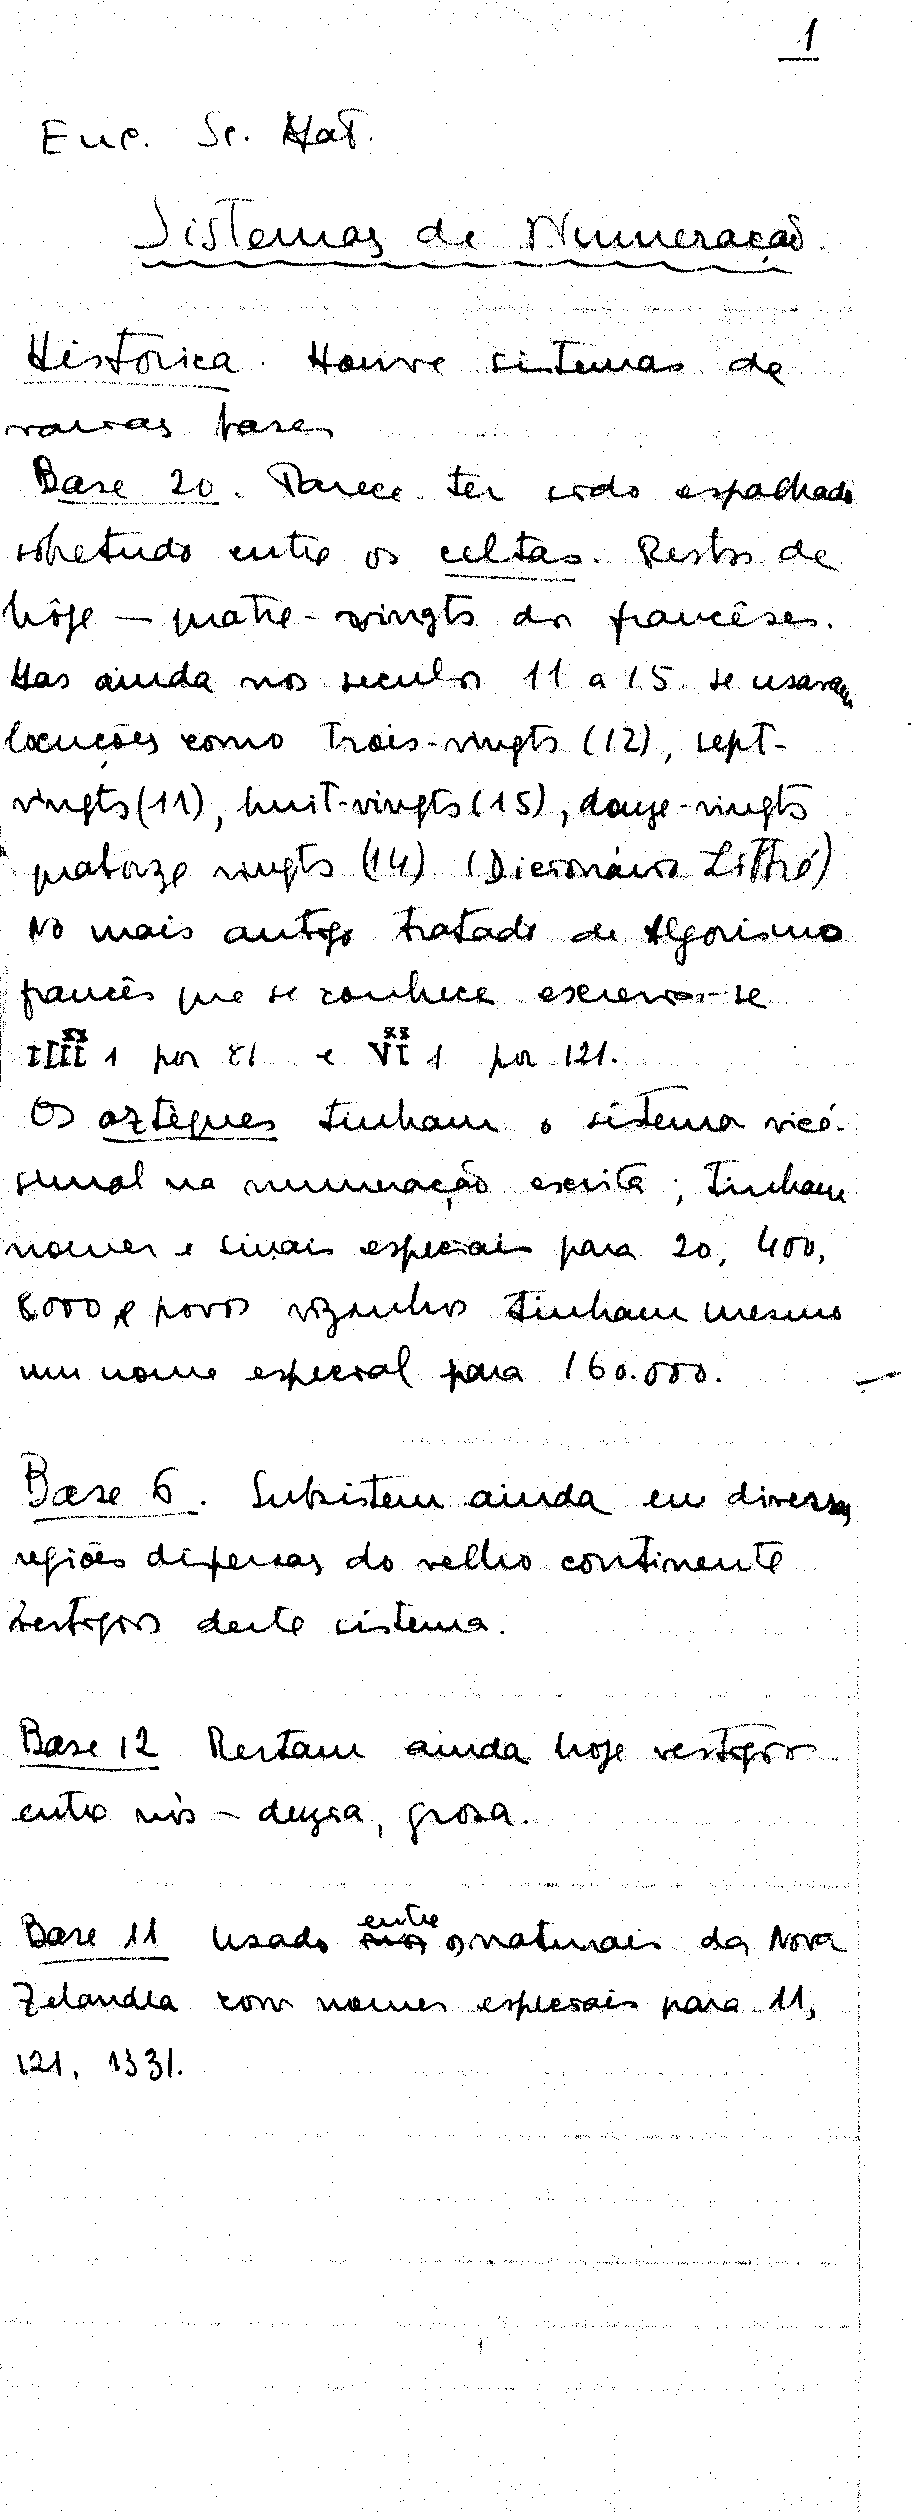 1
Enc. Sc. Mat.
Sistemas de Numeração
Histórica. Houve sistemas de
varias bases
Base 20. Parece ter sido espalhado
sobretudo entre os celtas. Restos de
hôje – quatre-vingts dos francêses.
Mas ainda nos seculos 11 a 15 se usavam
locuções como trois-vingts (12), sept-
vingts (11), huit-vingts (15), douze-vingts
quatorze vingts (14) (Dicionário Littré)
No mais antigo tratado de Algorismo
francês que se conhece escreve-se
IIII^XX 1 por 81 e VI^XX 1 por 121.
Os aztèques tinham o sistema vicé-
simal na numeração escrita; tinham
nomes e sinais especiais para 20, 400,
8000 e povos vizinhos tinham mesmo
um nome especial para 160.000.
Base 6. Subsistem ainda em diversas
regiões dispersas do velho continente
vestigios deste sistema.
Base 12 Restam ainda hoje vestigios
entre nós – duzia, grosa.
Base 11 Usado entre os naturais da Nova
Zelandia com nomes especiais para 11,
121, 1331.